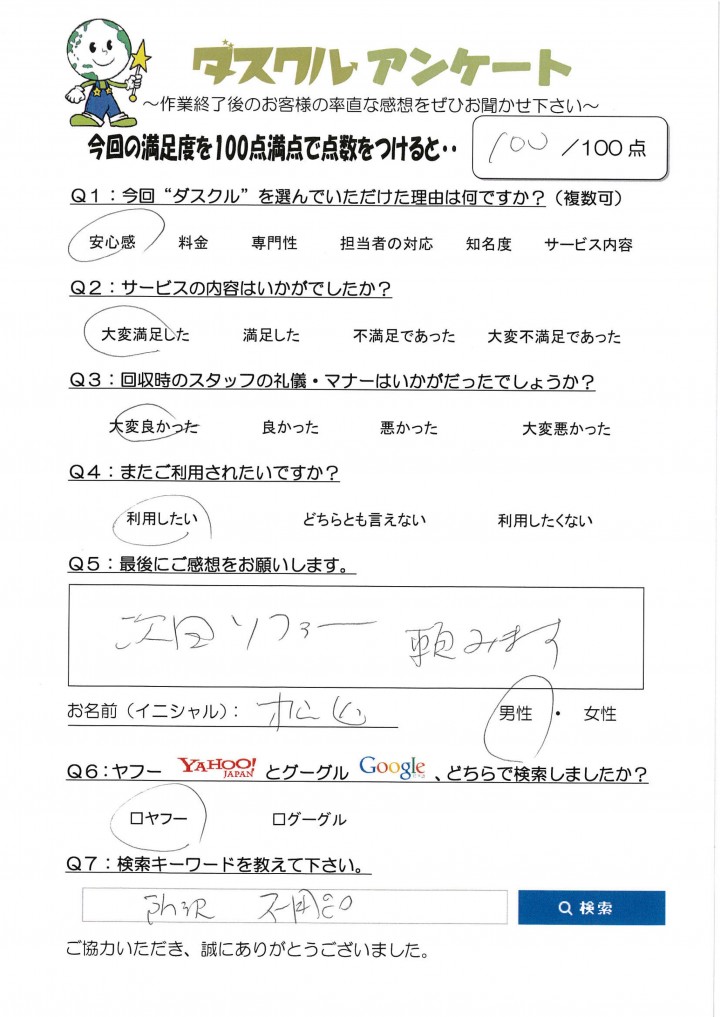 ダスクル アンケート
～作業終了後のお客様の率直な感想をぜひお聞かせ下さい～
今回の満足度を100点満点で点数をつけると・・ 100 /100点
Q1：今回“ダスクル”を選んでいただけた理由は何ですか？（複数可）
安心感 料金 専門性 担当者の対応 知名度 サービス内容
Q2：サービスの内容はいかがでしたか？
大変満足した 満足した 不満足であった 大変不満足であった
Q3：回収時のスタッフの礼儀・マナーはいかがだったでしょうか？
大変良かった 良かった 悪かった 大変悪かった
Q4：またご利用されたいですか？
利用したい どちらとも言えない 利用したくない
Q5：最後にご感想をお願いします。
次回ソファー 頼みます
お名前（イニシャル）： 男性 ・ 女性
Q6：ヤフー YAHOO! JAPAN とグーグル Google 、どちらで検索しましたか？
□ヤフー □グーグル
Q7：検索キーワードを教えて下さい。
不用品 検索
ご協力いただき、誠にありがとうございました。